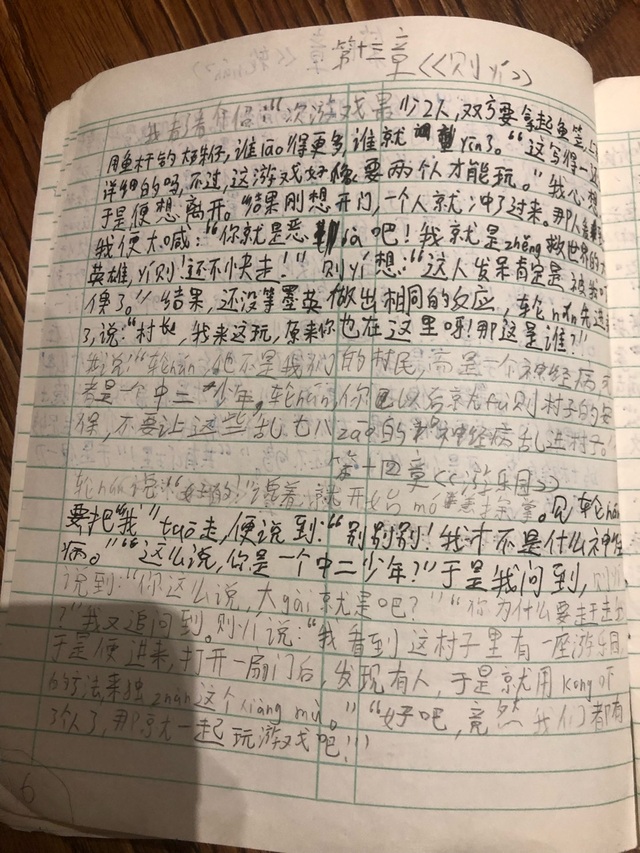 第十三章《则yì》
我看了看介绍:“次游戏最少2人,双方要拿起鱼竿,
用鱼杆钓大虾仔,谁lāo得更多,谁就yíng了。”“这写得一
详细的吗,不过,这游戏好像要两个人才能玩。”我心想
于是便想离开。结果刚想开门,一个人就冲了过来。那人
我便大喊:“你就是恶bà吧!我就是zhěng救世界的
英雄,yì则!还不快走!”则yì想:“这人发呆肯定是被我吓
傻了。”结果,还没等墨英做出相同的反应,轮hán先进
了,说:“村长,我来这玩,原来你也在这里呀!那这是谁?”
我说:“轮hán,他不是我们的村民,而是一个神经病
者是一个中二少年。轮hán,你以后就fù则村子的安
保,不要让这些乱七八zāo的神经病乱进村子。
第十四章《游乐园》
轮hán说:“好的!”说着,就开始mó拳擦掌。见轮hán
要把“我”tuō走,便说到:“别别别!我才不是什么神经
病。”“这么说,你是一个中二少年?”于是我问到,则yì
说到:“你这么说,大gài就是吧?”“你为什么要赶走
?”我又追问到。则yì说:“我看到这村子里有一座游乐园
于是便进来,打开一扇门后,发现有人,于是就用kǒng吓
的方法来独zhàn这个xiàng mù。”“好吧,竟然我们都有
3个人了,那就一起玩游戏吧!”
6